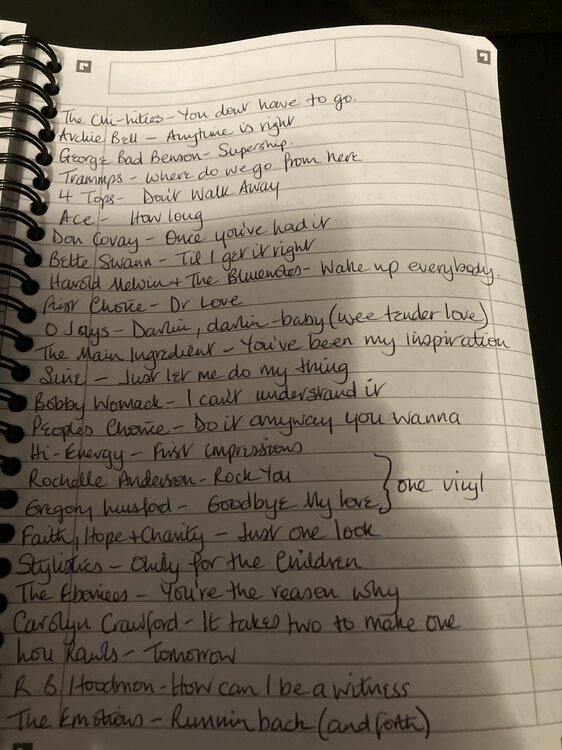 The Chi-lities - You dont have to go.
Archie Bell - Anytime is right
George Bad Benson - Supership.
Trammps - where do we go from here
4 Tops - Don't Walk Away
Ace - How long
Don Covay - Once you've had it
Bette Swann - Til I get it right
Harold Melvin + The Bluenotes - Wake up everybody.
First Choice - Dr Love
O Jays - Darlin, darlin-baby (wee tender love)
The Main Ingredient - You've been my inspiration
Sine - Just let me do my thing
Bobby Womack - I can't understand it
Peoples Choice - Do it anyway you wanna
Hi-Energy - First impressions
Rochelle Anderson - Rock You
Gregory - Goodbye My love } one vinyl
Faith, Hope + Charity - Just one look
Stylistics - Only for the Children
The Ebonees - You're the reason why
Carolyn Crawford - It takes two to make one
Lou Rawls - Tomorrow
R. B. Hoodmon - How can I be a witness
The Emotions - Runnin back (and forth)